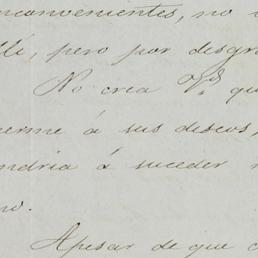 inconvenientes, no
allí, pero por desgra
No crea Vd. qu
nerme á sus deseos,
ndria á suceder
no.
Apesar de que c